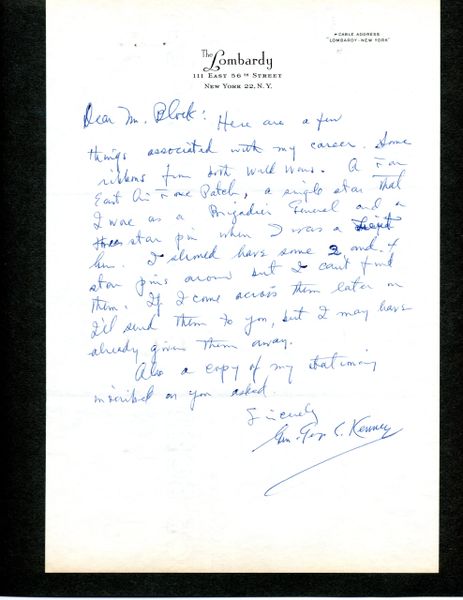 "CABLE ADDRESS
"LOMBARDY-NEW YORK"
The Lombardy
111 EAST 56TH STREET
NEW YORK 22, N.Y.
Dear Mr. Block: Here are a few
things associated with my career. Some
ribbons from both World Wars. A Far
East Air Force Patch, a single star that
I wore as a Brigadier General and a
three star pin when I was a Lieut
Gen. I should have some 2 and 4
star pins around but I can't find
them. If I come across them later on
I'll send them to you, but I may have
already given them away.
Also a copy of my stationery
inscribed as you asked.
Sincerely
Gen. Geo C. Kenney